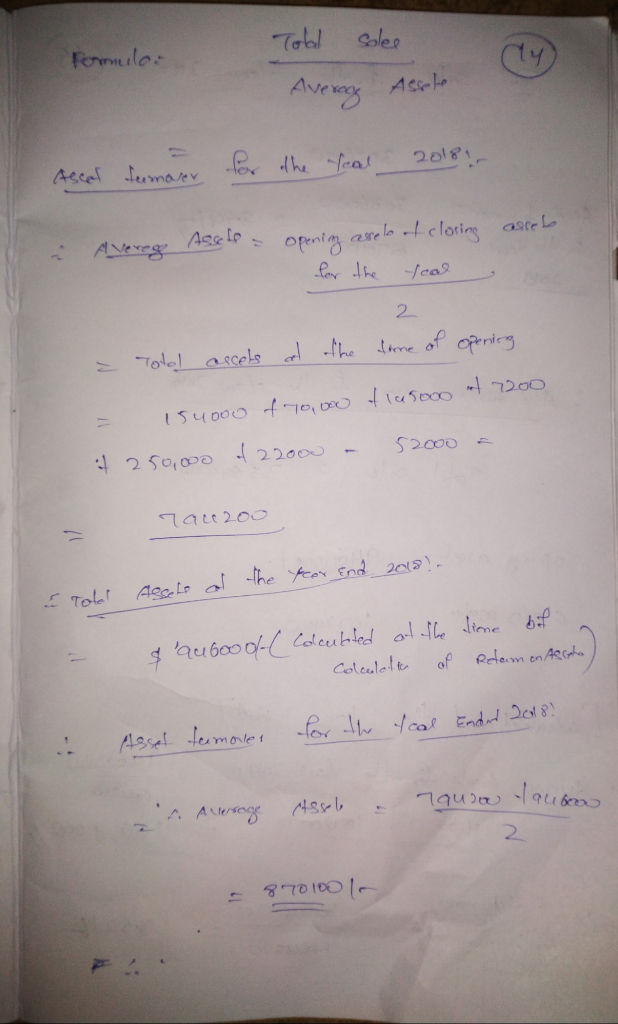 Total Sales
Formula:-
14
Average Assets
=
Asset turnover for the Year 2018:-
∴ Average Assets = opening assets + closing assets
for the Year
2
= Total assets at the time of opening
= 154000 + 70,000 + 145000 + 7200
+ 250,000 + 22000 - 52000 =
= 794200
∴ Total Assets at the Year End 2018:-
= $ 946000/- ( Calculated at the time of
Calculation of Return on Assets )
∴ Asset turnover for the Year Ended 2018:
= ∴ Average Assets = 794200 + 946000
2
= 870100/-
= ∴